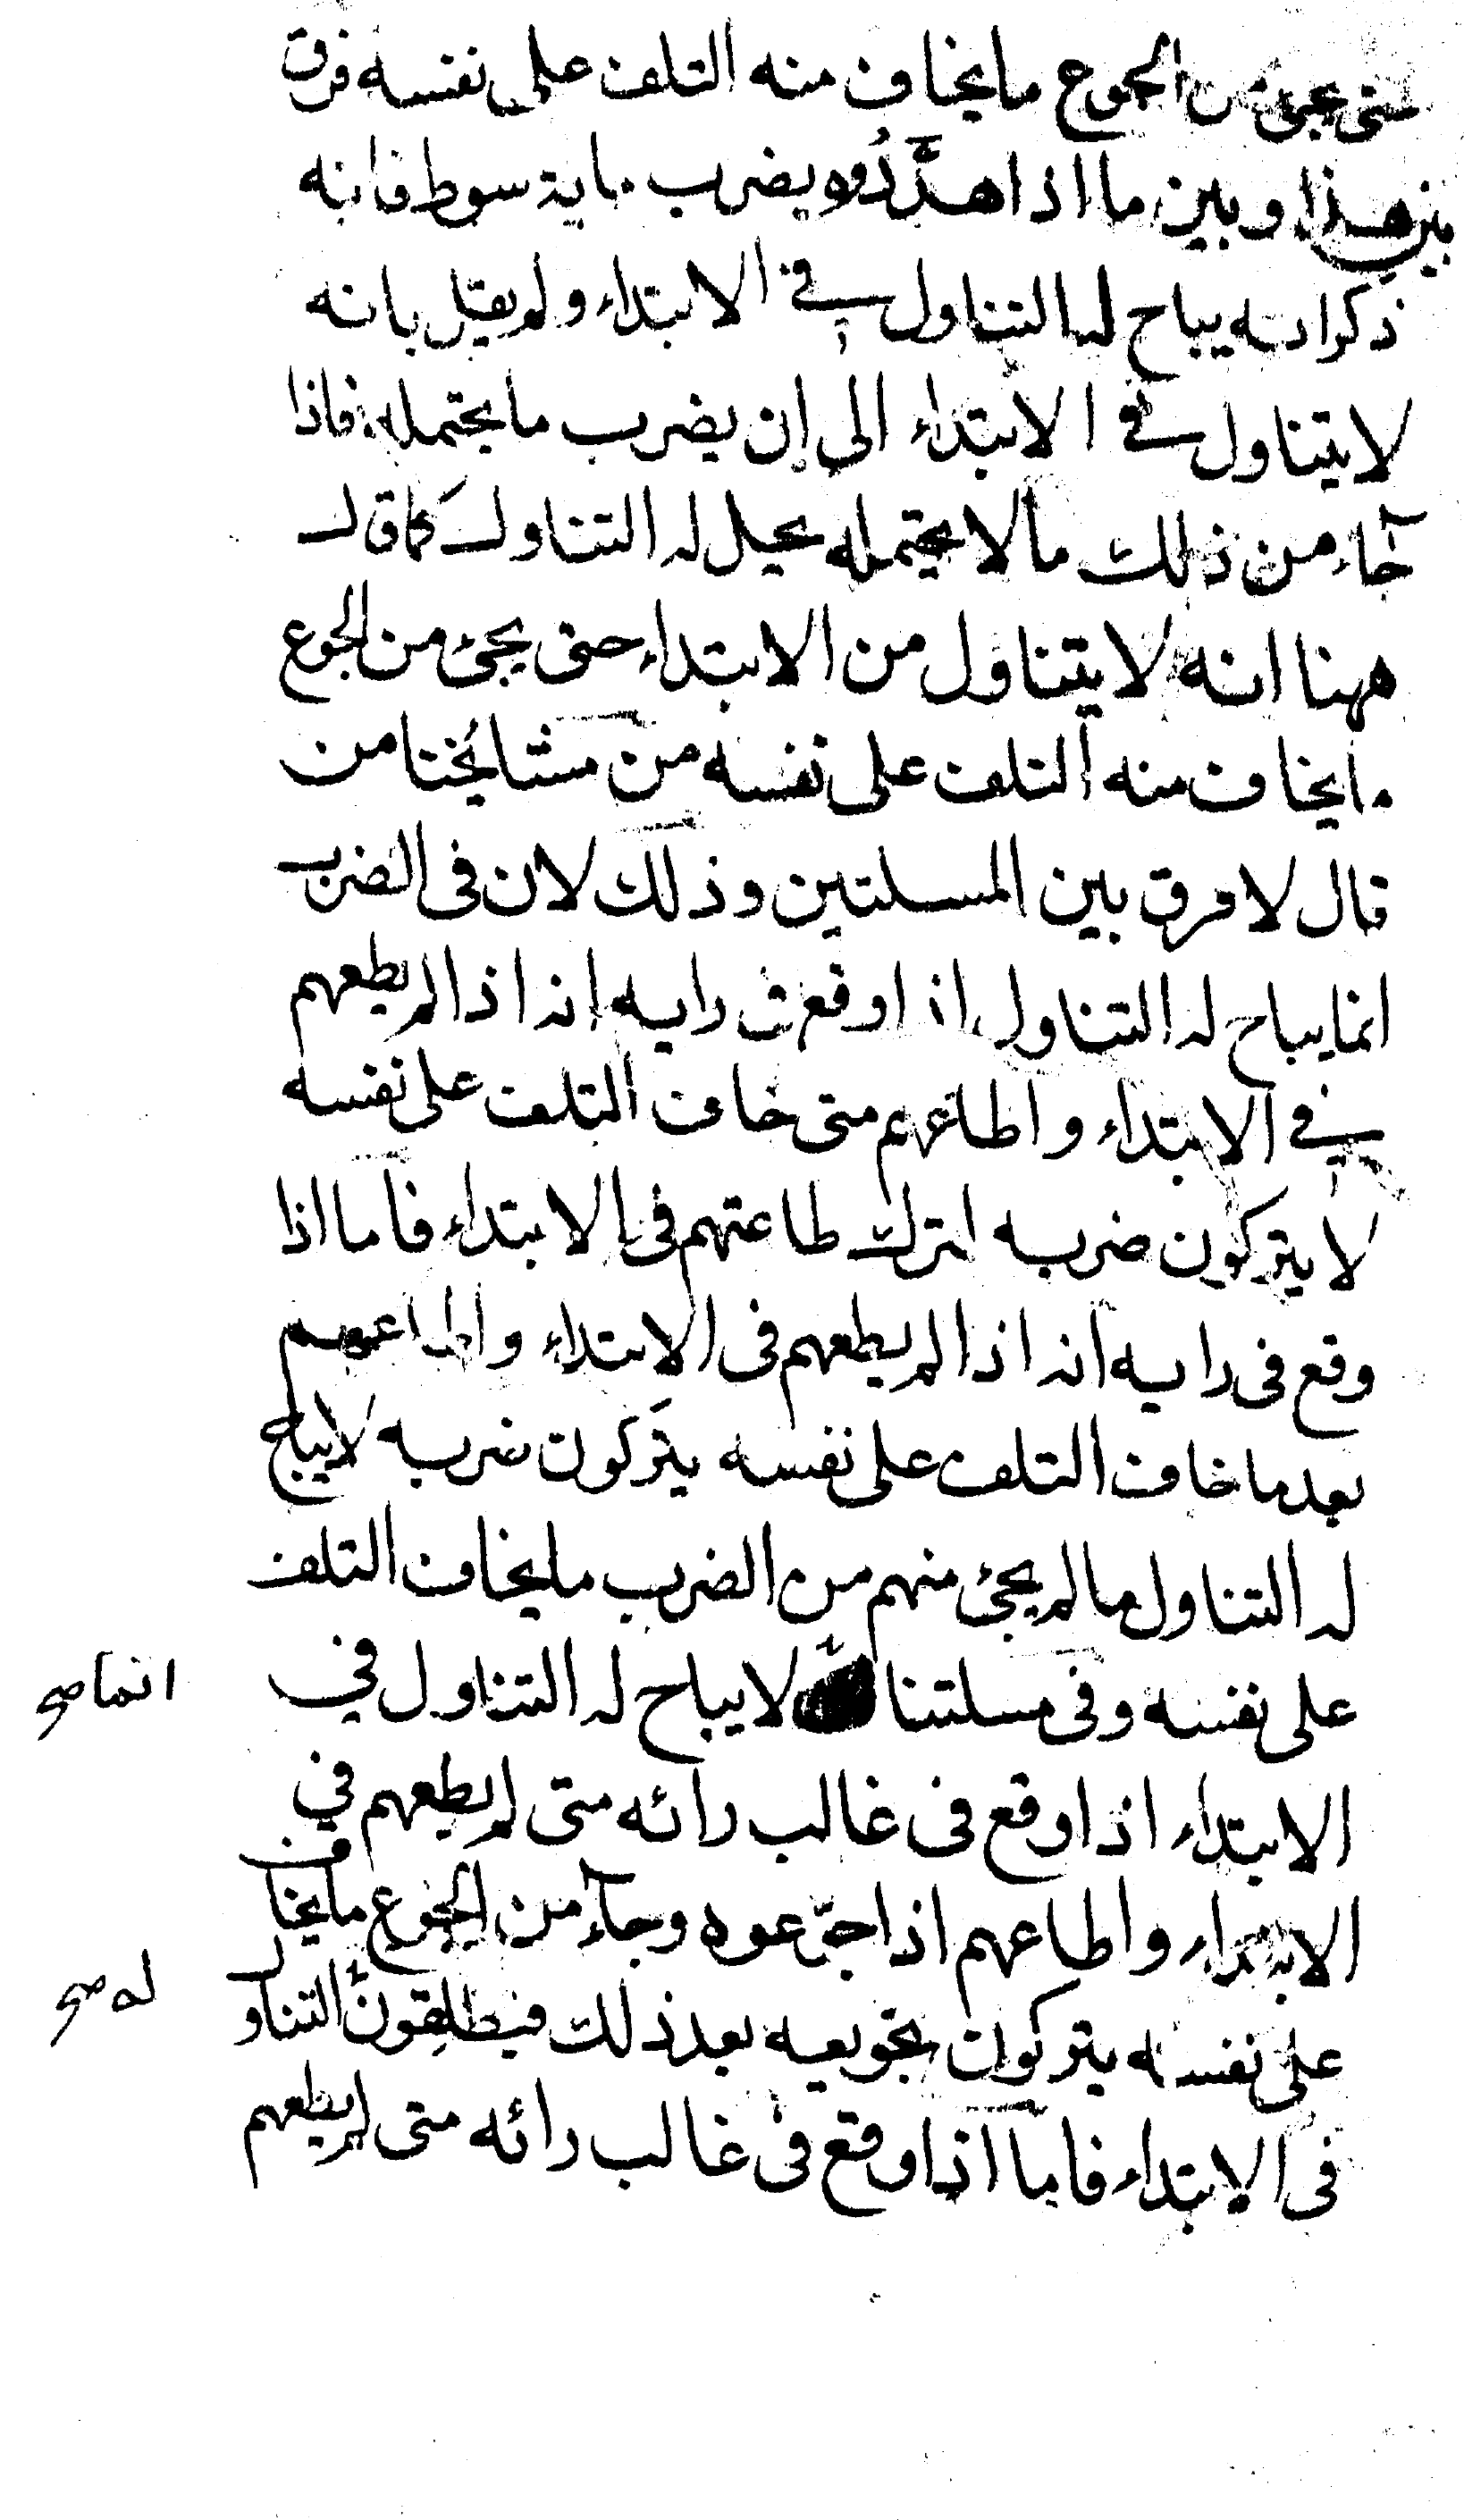 حتى يجئ من الجوع ما يخاف منه التلف على نفسه فرق
بين هذا وبين ما اذا هدَّدُوه بضرب ماية سوط فانه
ذكر انه يباح له التناول في الابتداء ولم يقل بانه
لا يتناول في الابتداء الى ان يضرب ما يحتمله فاذا
جآء من ذلك مالا يحتمله يحل له التناول كما قال
ههنا انه لا يتناول من الابتداء حتى يجئ من الجوع
ما يخاف منه التلف على نفسه من مشايخنا من
قال لا فرق بين المسلتين وذلك لان فى الضرب
انما يباح له التناول اذا وقع في رايه انه اذا لم يطعهم
في الابتداء واطاعهم متى خاف التلف على نفسه
لا يتركون ضربه لترك طاعتهم فى الابتداء فاما اذا
وقع فى رايه انه اذا لم يطعهم فى الابتداء واطاعهم
بعد ما خاف التلف على نفسه يتركون ضربه لا يباح
له التناول ما لم يجئ منهم من الضرب ما يخاف التلف
على نفسه وفى مسلتنا لا يباح له التناول في
انما صح
الابتداء اذا وقع فى غالب رائه متى لم يطعهم في
الابتداء واطاعهم اذا جوّعوه وجآء من الجوع ما يخاف
على نفسه يتركون تجويعه بعد ذلك فيطلِقونَ التناول
له صح
فى الابتداء فاما اذا وقع فى غالب رائه متى لم يطعهم